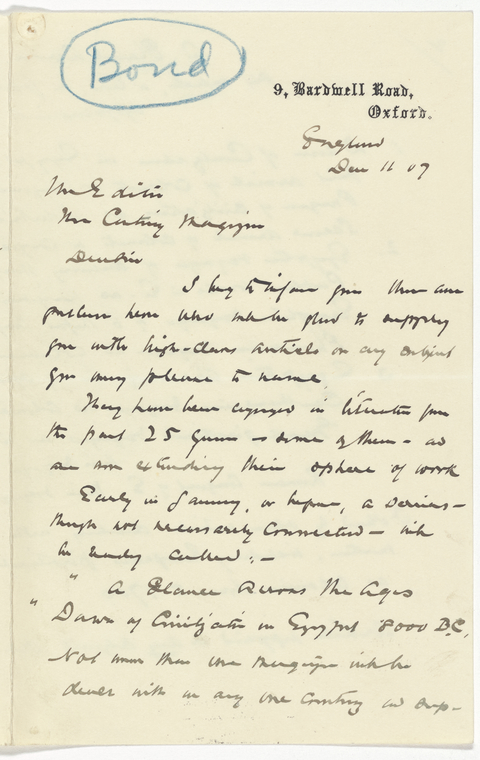 Bond
9, Bardwell Road,
Oxford.
England
Dec 11 07
The Editor
The Century Magazine
Dear Sir
I beg to inform you there are
gentlemen here who will be glad to supply
you with high-class articles on any subject
you may please to name.
They have been engaged in literature for
the past 25 years - some of them - and
are now extending their sphere of work
Early in January, or before, a series -
though not necessarily connected - will
be ready called :-
" A Glance Across the Ages
" Dawn of Civilization in Egypt 8000 B.C.
Not more than one magazine will be
dealt with in any one country and